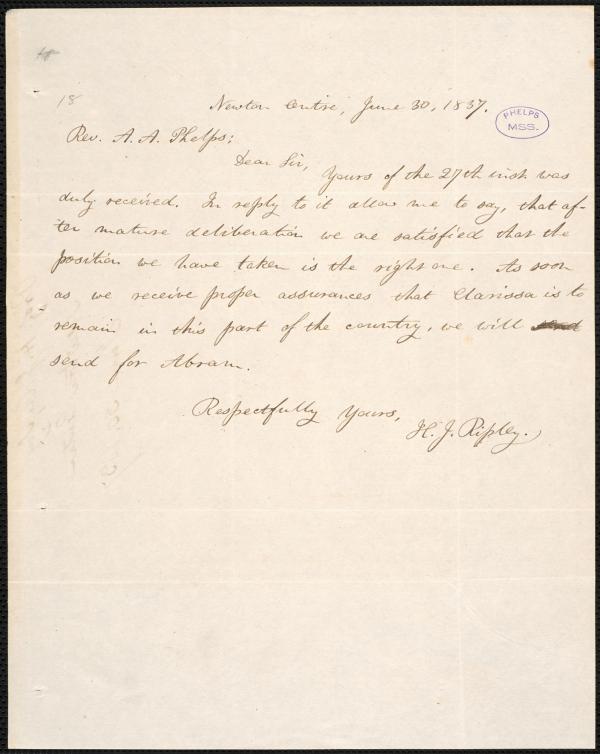 18
Newton Centre, June 30, 1837.
PHELPS
MSS.
Rev. A. A. Phelps;
Dear Sir,
Yours of the 27th inst. was
duly received. In reply to it allow me to say, that af-
ter mature deliberation we are satisfied that the
position we have taken is the right one. As soon
as we receive proper assurances that Clarissa is to
remain in this part of the country, we will send
send for Abram.
Respectfully Yours,
H. J. Ripley.